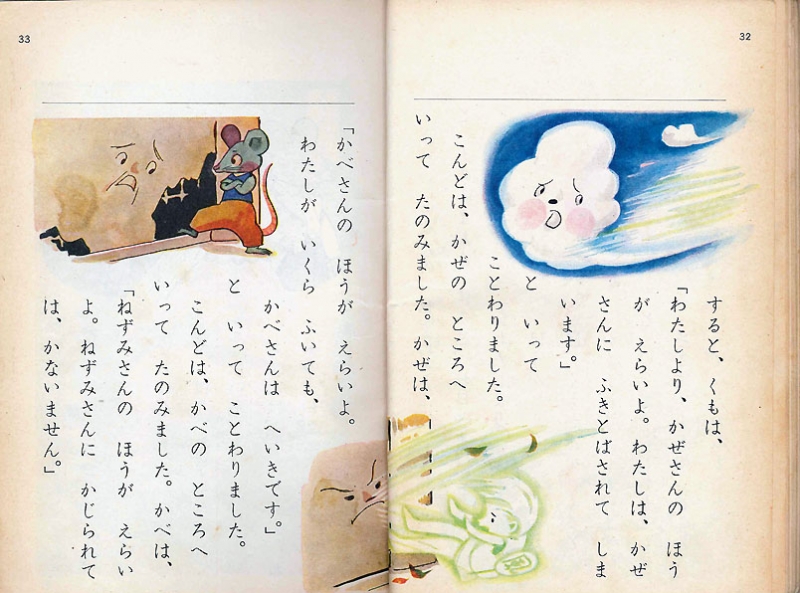 32
すると、くもは、
「わたしより、かぜさんの ほう
が えらいよ。わたしは、かぜ
さんに ふきとばされて しま
います。」
と いって
ことわりました。
こんどは、かぜの ところへ
いって たのみました。かぜは、
33
「かべさんの ほうが えらいよ。
わたしが いくら ふいても、
かべさんは へいきです。」
と いって ことわりました。
こんどは、かべの ところへ
いって たのみました。かべは、
「ねずみさんの ほうが えらい
よ。ねずみさんに かじられて
は、かないません。」